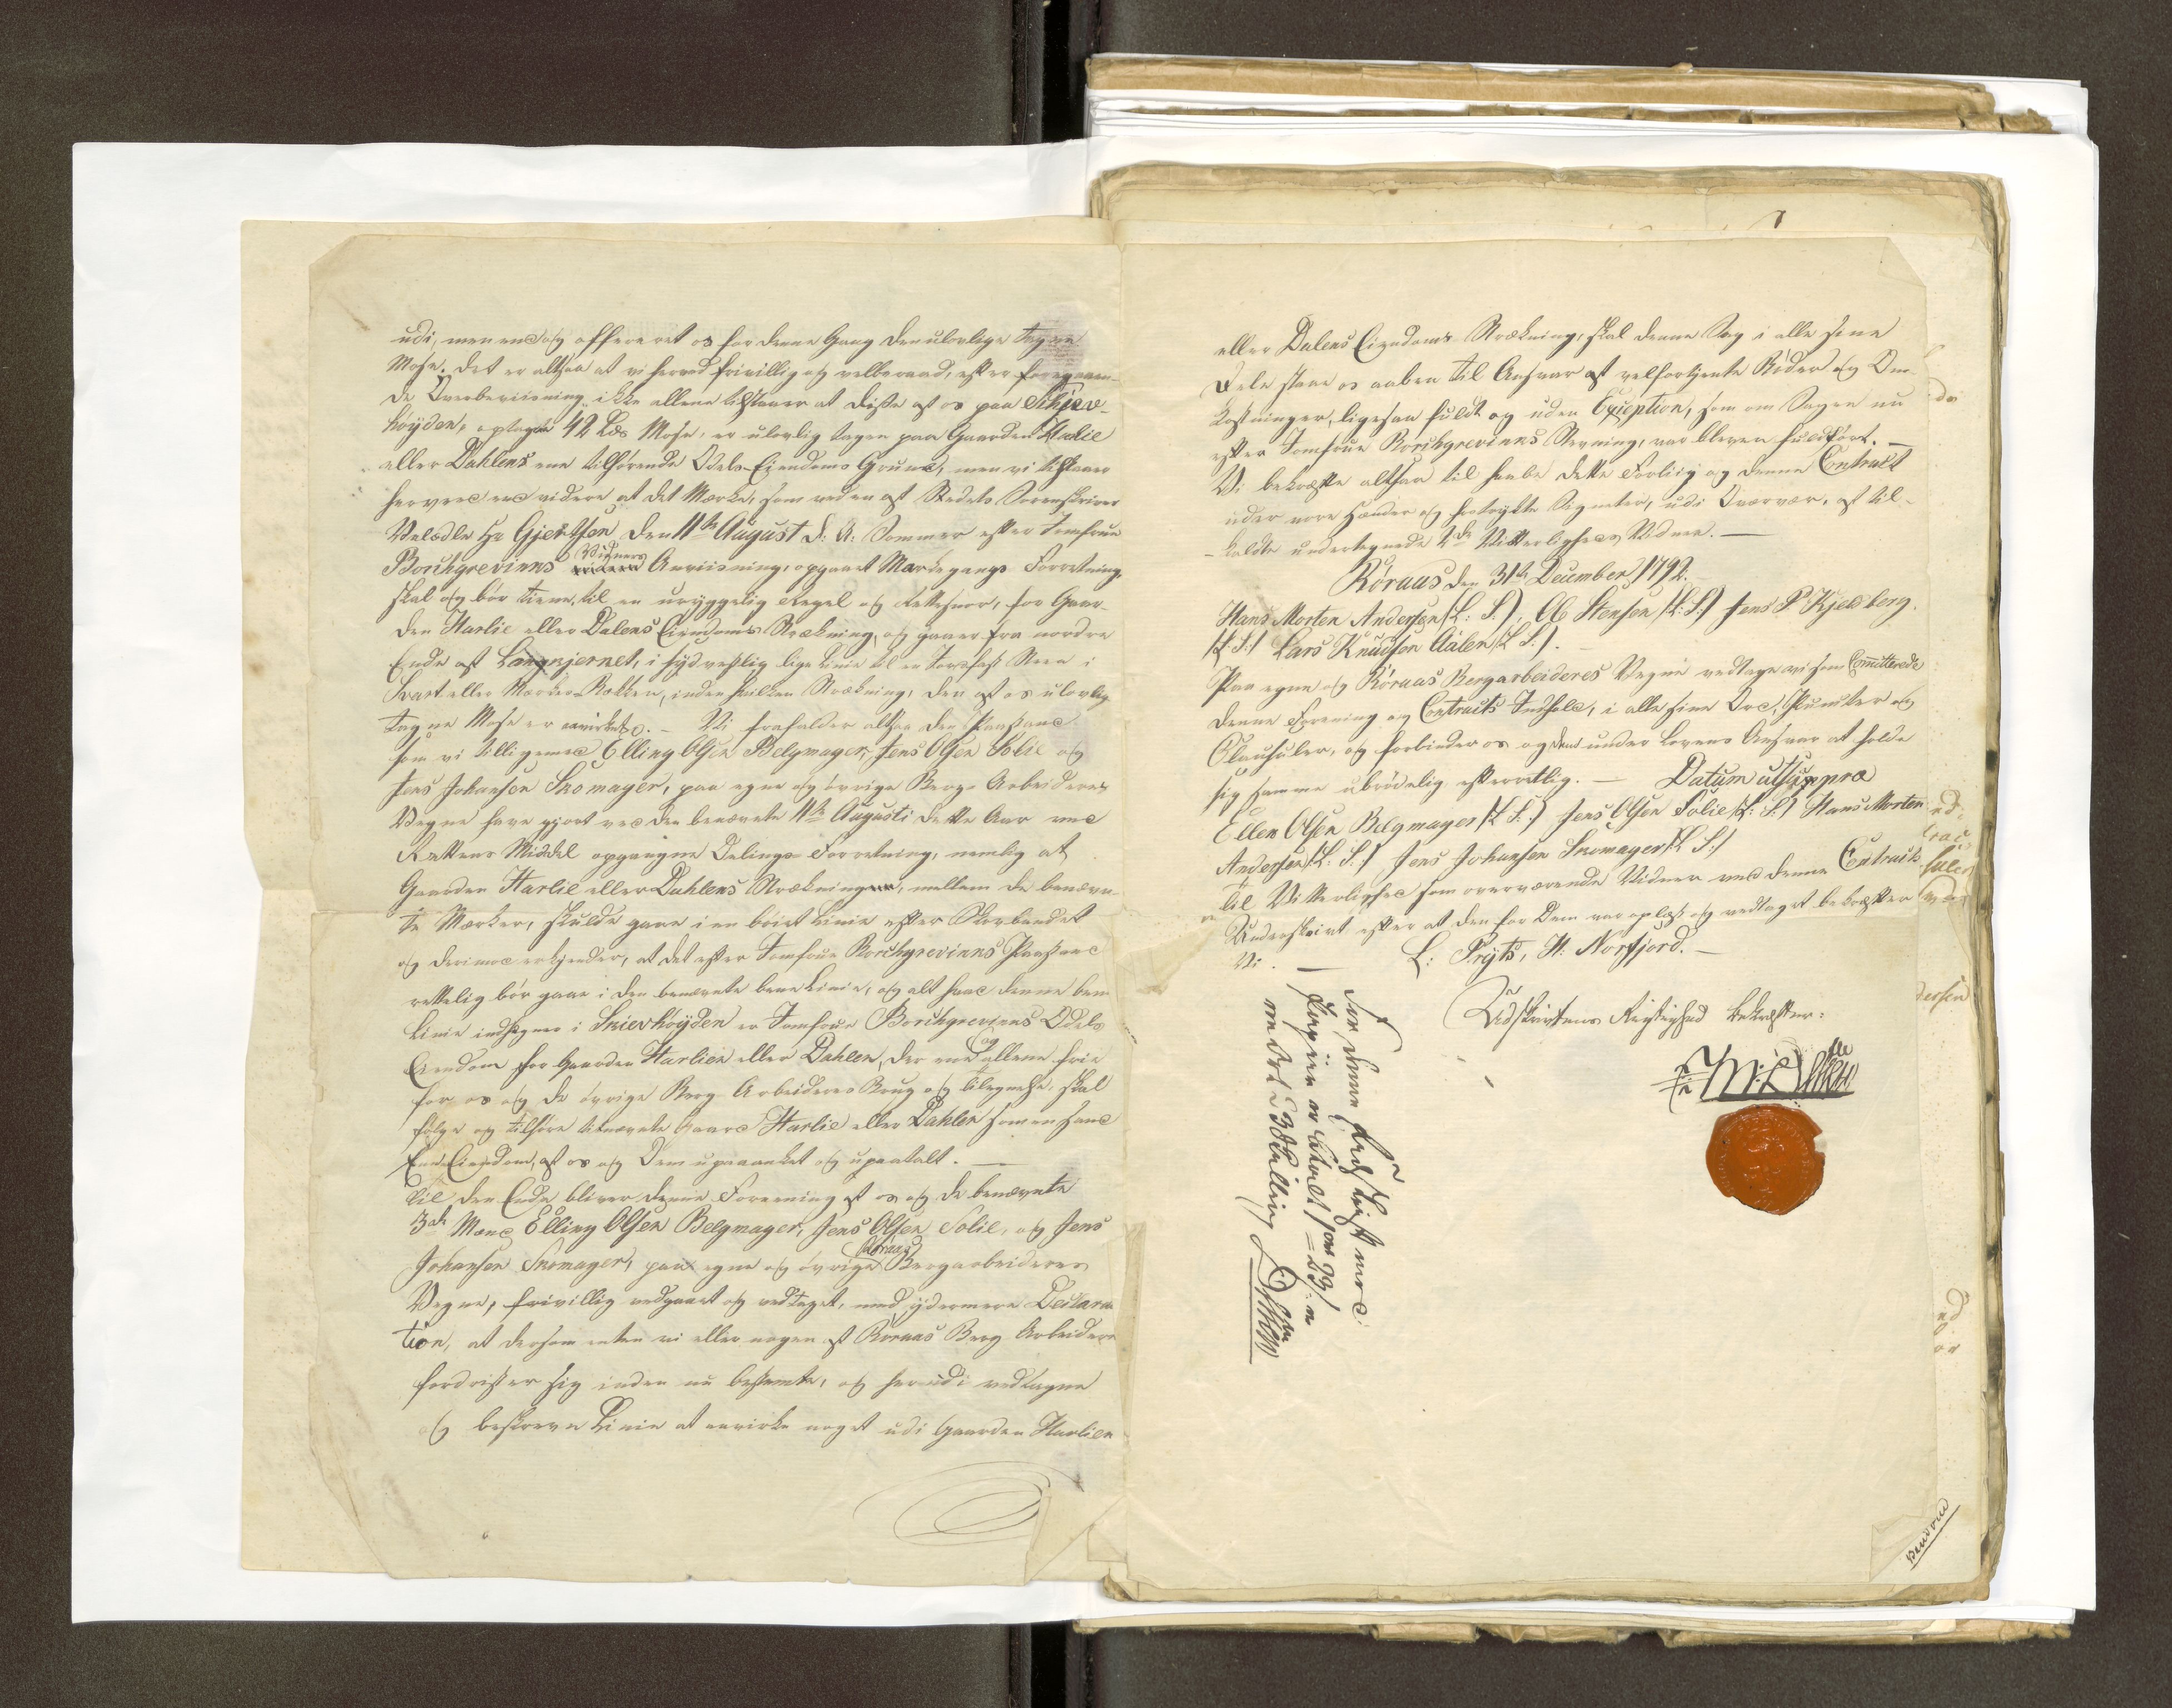 udi, men endog offereret os for denne Gang den ulovlige tagne
Mose. Det er altsaa at vi herved frivillig og velberaad, efter foregaaen-
de Overbeviisning ikke allene tilstaaer at disse af os paa Schjev-
høyden, optagne 42 Læs Mose, er ulovlig tagen paa Gaarden Harlie
eller Dahlens ene tilhørende Odels Eiendoms Grund, men vi tilstaaer
herved end videre at det Mærke, som neden af Stedets Sorenskriver
Velædle Hr Gjertsen den 11te August d: A: Sommer efter Jomfrue
Borchgrevinns Vidners Anviisning, opgaaet Markegangs Forretning,
skal og bør tiene til en uryggelig Regel og Rettesnor, for Gaar-
den Harlie eller Dalens Eiendoms Strækning, og gaaer fra nordre
Ende af Langkjernet, i sydvestlig lige Linie til en Jordfast Steen i
Svart eller Mærker Bækken, inden hvilken Strækning, den af os ulovlig
tagne Mose er avirket. – Vi frafalder altsaa den Paastand
som vi tilligemed Elling Olsen Belgmager, Jens Olsen Solie og
Jens Johansen Skomager, paa egne og øvrige Berg-Arbeideres
Vegne have gjort ved den benævnte 11te Augusti dette Aar ved
Rettens Middel opgangne Delings Forretning, nemlig at
Gaarden Harlie eller Dahlens Strækning, mellem de benævn-
te Mærker, skulde gaae i en bøiet Linie efter
og derimod erkjender, at det efter Jomfrue Borchgrevinns Paastand
rettelig bør gaae i den benævnte bene Linie, og alt hvad denne bene
Linie indhegner i Skievhøyden er Jomfrue Borchgrevinns Odels
Eiendom for Gaarden Harlien eller Dahlen, der ene og allene frie
for os og de øvrige Berg-Arbeideres Brug og Tilegnelse, skal
følge og tilhøre benævnte Gaard Harlie eller Dahlen som en sand
Eiendom, af os og Dem upaaanket og upaatalt. –
Til den Ende bliver denne Foreening af os og de benævnte
3de Mænd Elling Olsen Belgmager, Jens Olsen Solie, og Jens
Johansen Skomager, paa egne og øvrige Røraas Bergarbeideres
Vegne, frivillig vedgaaet og vedtaget, med ydermere Declara-
tion, at dersom enten vi eller nogen af Røraas Berg Arbeidere
fordrister sig inden nu bestemte, og herudi vedtagne
og beskrevne Linie at avirke noget udi Gaarden Harlien
eller Dalens Eiendoms Strækning, skal denne Sag i alle sine
Dele staae os aaben til Ansvar af velfortjente Bøder og Om-
kostninger, ligesaa fuldt og uden Exception, som om Sagen nu
efter Jomfrue Borchgrevinns Stevning, var bleven fuldført. –
Vi bekræfte altsaa til Haabe dette Forliig og denne Contract
under vore Hænder og hostrykte Signeter, udi Overvær, af til-
kaldte undertegnede 2de Vitterligheds Vidner. –
Røraas den 31te December 1792.
Hans Morten Andersen (L: S:), Ole Stensen (L: S:) Jens P Kjelsberg.
(L: S:) Lars Knudsen Aalen (L S:).
Paa egne og Røraas Bergarbeideres Vegne vedtage vi som Committerede
denne Forening og Contracts Indhold, i alle sine Ord, Puncter og
Clausuler, og forbinder os og dem under Lovens Ansvar at holde
sig samme ubrødelig efterrettlig. – Datum ut supra
Ellen Olsen Belgmager (L S:) Jens Olsen Solie (L: S:) Hans Morten
Andersen (L: S:) Jens Johansen Skomager (L S:)
Til Vitterlighed som overværende Vidner ved denne Contracts
Underskrivt efter at den for Dem var oplæst og vedtaget bekræfter
Vi. –
L: Prÿts, H: Norfjord. –
Udskriftens Rigtighed bekræfter:
For denne Udskrift med
Papiir er betalt 1 Ort 23 s:
en Ort 23 Skilling